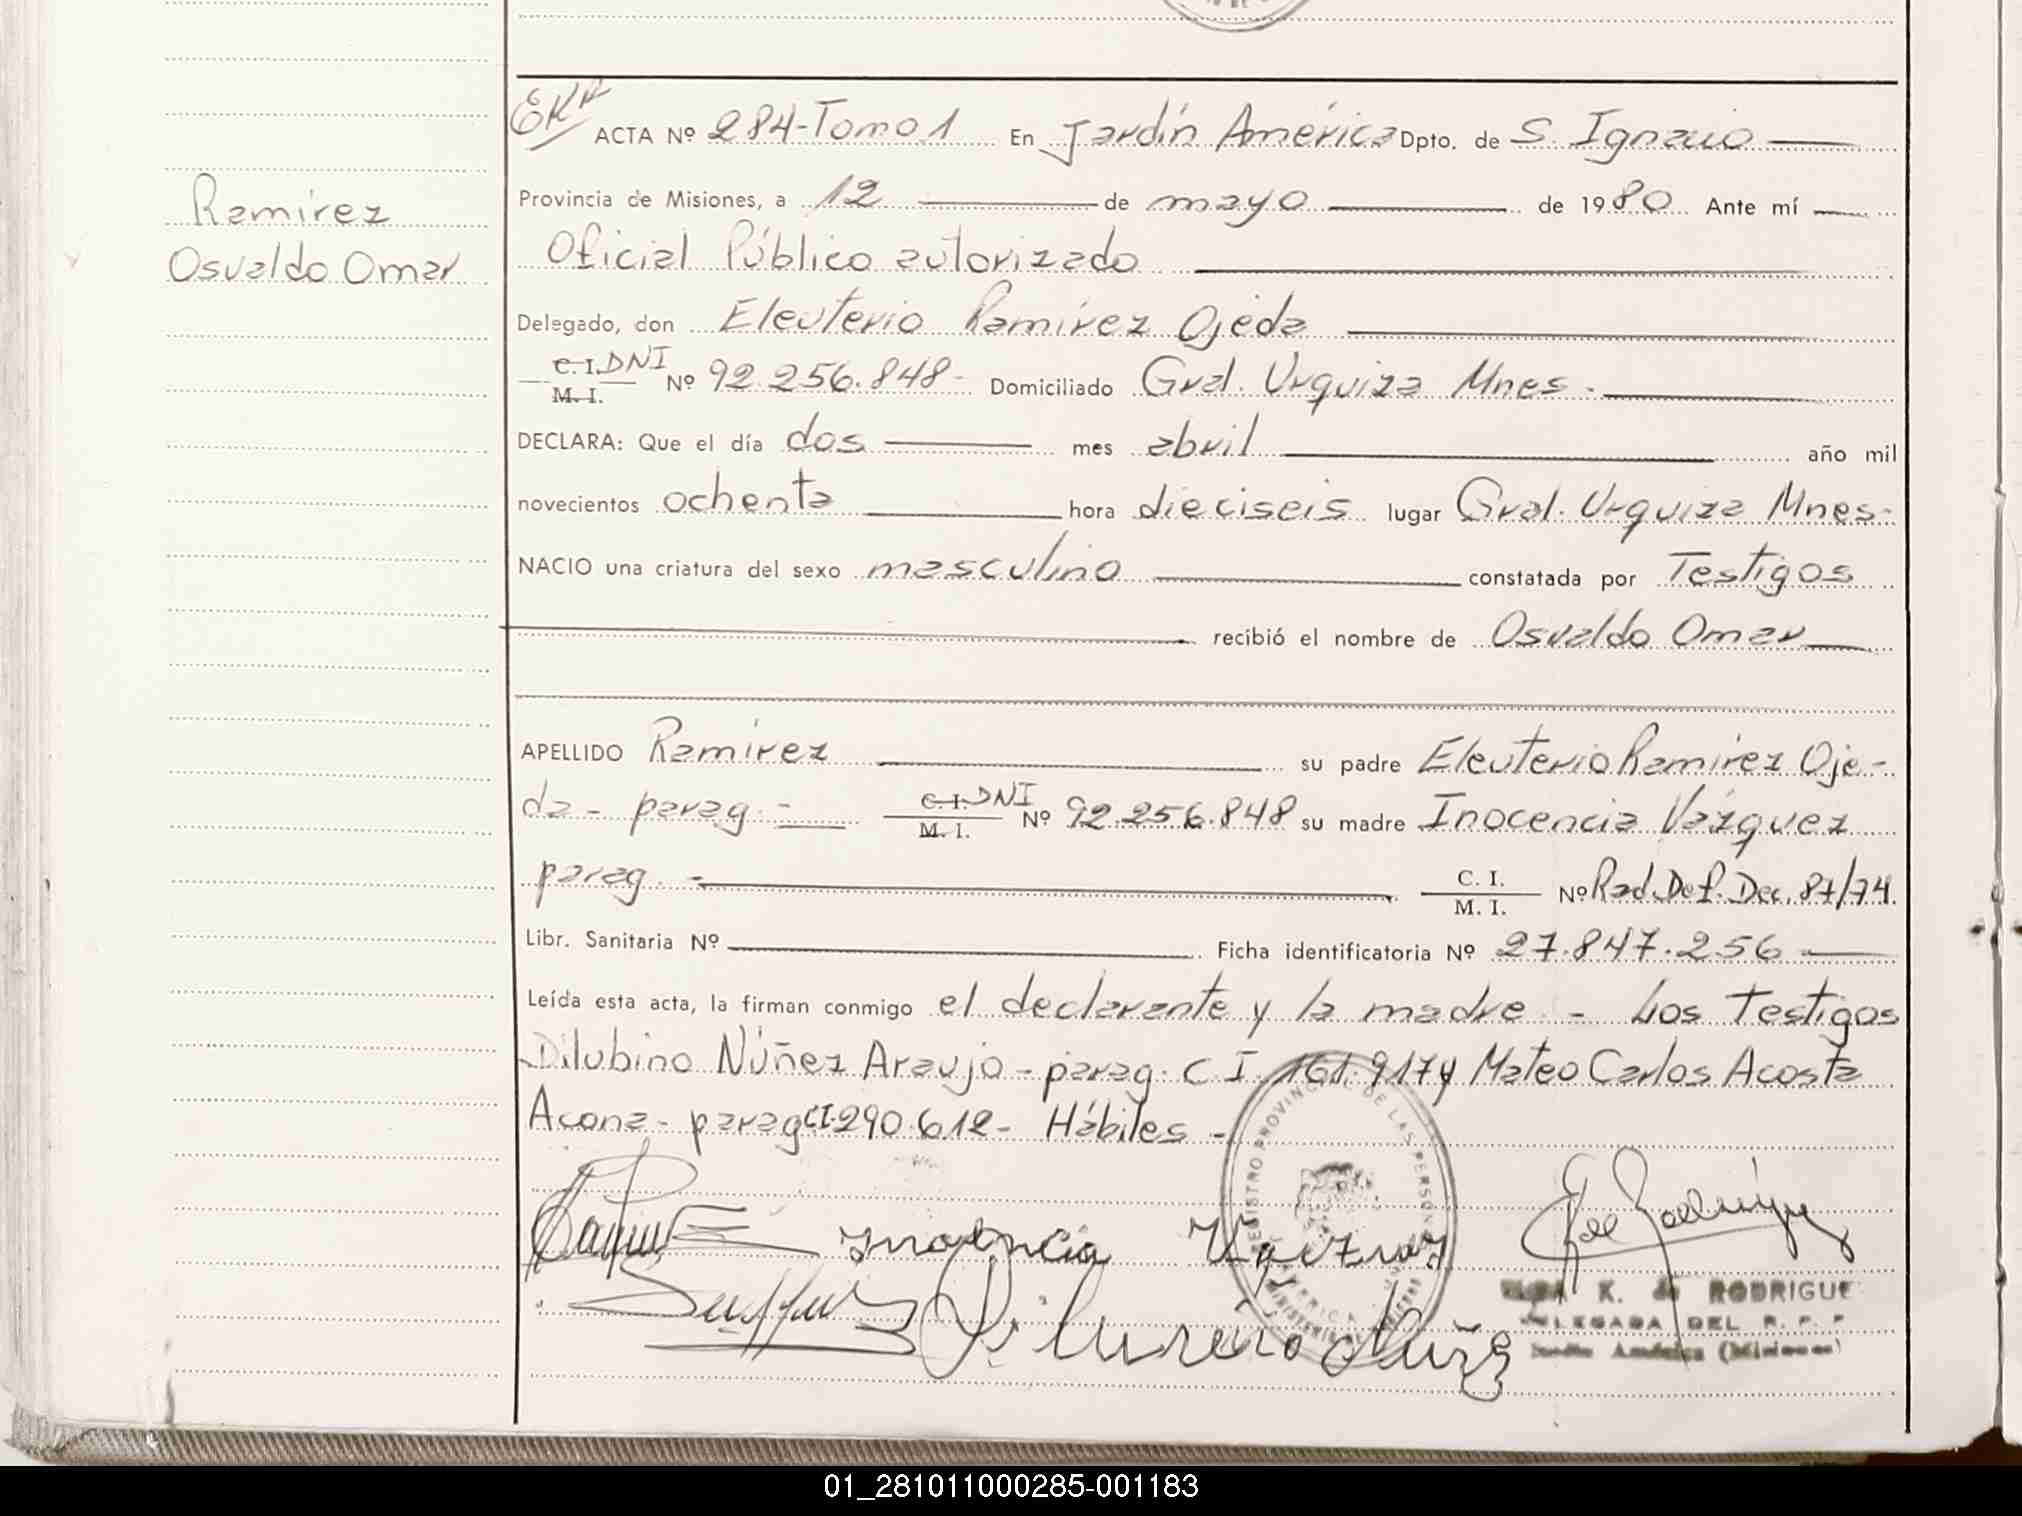 Ramírez
Osvaldo Omar
EKR ACTA Nº 284-Tomo 1 En Jardín América Dpto. de S. Ignacio
Provincia de Misiones, a 12 de mayo de 1980 Ante mí
Oficial Público autorizado
Delegado, don Eleuterio Ramírez Ojeda
C. I. DNI
M. I. Nº 92.256.848- Domiciliado Gral. Urquiza Mnes.
DECLARA: Que el día dos mes abril año mil
novecientos ochenta hora dieciseis lugar Gral. Urquiza Mnes-
NACIO una criatura del sexo masculino constatada por Testigos
recibió el nombre de Osvaldo Omar
APELLIDO Ramírez su padre Eleuterio Ramírez Oje-
da - parag. - C. I. DNI
M. I. Nº 92.256.848 su madre Inocencia Vázquez
parag. - C. I.
M. I. Nº Rad. Def. Dec. 87/74.
Libr. Sanitaria Nº Ficha identificatoria Nº 27.847.256
Leída esta acta, la firman conmigo el declarante y la madre - Los Testigos
Dilubino Núñez Araujo - parag. C I 161.917 y Mateo Carlos Acosta
Acona - parag CI. 290.612- Hábiles -
REGISTRO PROVINCIAL DE LAS PERSONAS
Inocencia
K. de RODRIGUE
DELEGADA DEL R. P. P
Jardín América (Misiones)
01_281011000285-001183